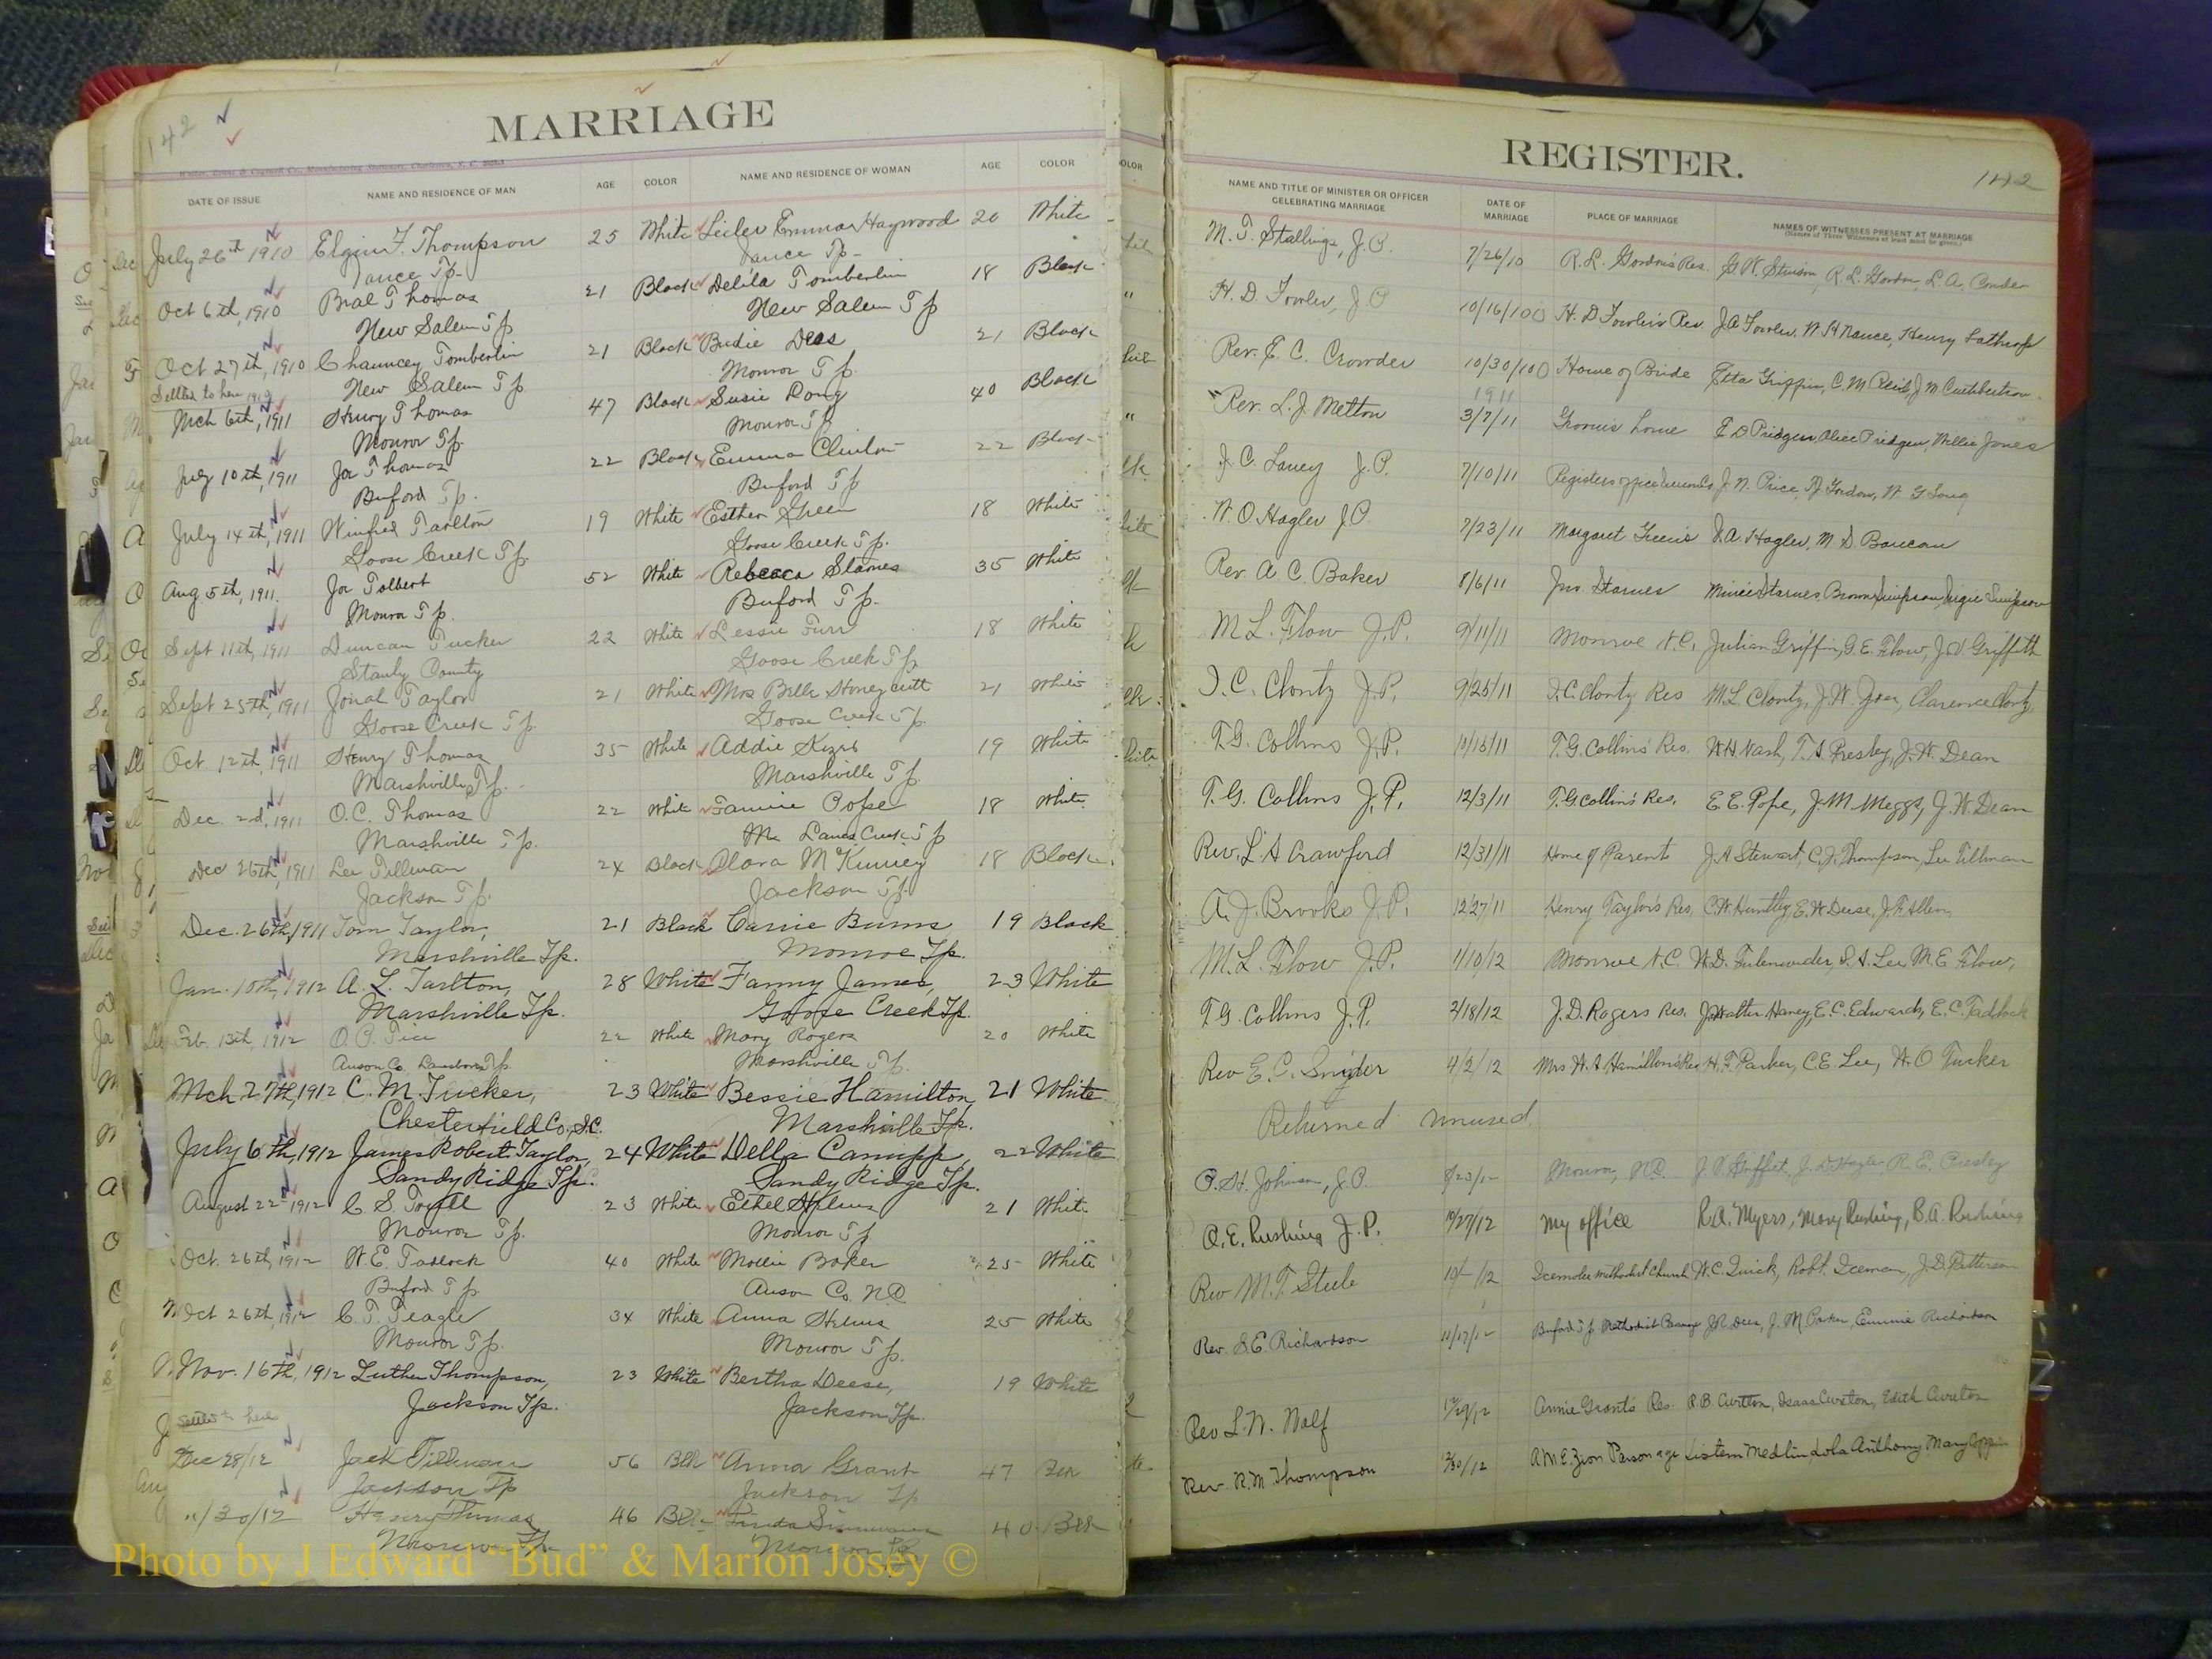 142
MARRIAGE
DATE OF ISSUE NAME AND RESIDENCE OF MAN AGE COLOR NAME AND RESIDENCE OF WOMAN AGE COLOR
July 26th 1910 Elgin F. Thompson 25 White Emma Haywood 20 White
Vance Tp- Vance Tp-
Oct 6th, 1910 Thomas 21 Black Delila Tomberlin 18 Black
New Salem Tp New Salem Tp
Oct 27th, 1910 Chauncey Tomberlin 21 Black Budie Dees 21 Black
Settled to here New Salem Tp. Monroe Tp.
Mch 6th, 1911 Henry Thomas 47 Black Susie 40 Black
Monroe Tp. Monroe Tp
July 10th, 1911 Joe Thomas 22 Black Emma Clinton 22 Black
Buford Tp. Buford Tp
July 14th, 1911 Winfred Tarlton 19 White Esther Green 18 White
Goose Creek Tp Goose Creek Tp.
Aug. 5th, 1911. Joe Tolbert 52 White Rebecca Starnes 35 White
Monroe Tp. Buford Tp.
Sept 11th, 1911 Duncan Tucker 22 White Lessie Furr 18 White
Stanly County Goose Creek Tp
Sept 25th, 1911 Jonal Taylor 21 White Mrs Belle Honeycutt 21 White
Goose Creek Tp. Goose Creek Tp.
Oct. 12th, 1911 Henry Thomas 35 White Addie 19 White
Marshville Tp. Marshville Tp.
Dec. 2d, 1911 O.C. Thomas 22 White Fannie Pope 18 White
Marshville Tp. Lanes Creek Tp
Dec 26th, 1911 Lee Tillman 24 Black Clara McKinney 18 Black
Jackson Tp. Jackson Tp.
Dec. 26th, 1911 Tom Taylor, 21 Black Carrie Burns 19 Black
Marshville Tp. Monroe Tp.
Jan. 10th, 1912 A. L. Tarlton, 28 White Fanny James, 23 White
Marshville Tp. Goose Creek Tp.
Feb. 13th, 1912 O. P. Tice 22 White Mary Rogers 20 White
Anson Co. Lanesboro Tp Marshville Tp.
Mch 27th, 1912 C. M. Tucker, 23 White Bessie Hamilton 21 White
Chesterfield Co., S.C. Marshville Tp.
July 6th, 1912 James Robert Taylor, 24 White Della 22 White
Sandy Ridge Tp. Sandy Ridge Tp.
August 22nd 1912 C. S. 23 White Ethel Helms 21 White
Monroe Tp. Monroe Tp
Oct. 26th, 1912 W. E. Tadlock 40 White Mollie Baker 25 White
Buford Tp Anson Co. NC
Oct 26th, 1912 C. T. Teagle 34 White Anna Helms 25 White
Monroe Tp. Monroe Tp.
Nov. 16th, 1912 Luther Thompson, 23 White Bertha Deese, 19 White
Jackson Tp. Jackson Tp.
Settled to here
Dec 28/12 Jack Tillman 56 Blk Anna Grant 47 Blk
Jackson Tp Jackson Tp
" /30/12 Henry Thomas 46 Blk 40 Blk
Monroe Tp. Monroe Tp
REGISTER.
142
NAME AND TITLE OF MINISTER OR OFFICER CELEBRATING MARRIAGE DATE OF MARRIAGE PLACE OF MARRIAGE NAMES OF WITNESSES PRESENT AT MARRIAGE
(Names of Three Witnesses at least must be given.)
M. T. Stallings, J.P. 7/26/10 R.L. Gordon's Res. G.W. Stinson, R.L. Gordon, L.A. Conder
H. D. Fowler, J.P 10/16/10 H. D Fowler's Res. J A Fowler, W H Nance, Henry Lathrop
Rev. E. C. Crowder 10/30/10 Home of Bride Etta Griffin, C. M J. M Cuthbertson
1911
Rev. L. J. Melton 3/7/11 Groom's home E D Pridgen, Alice Pridgen, Willie Jones
J. C. Laney J.P. 7/10/11 Registers office J. N. Price, Gordon, W. G. Long
W. O. Hagler J.P. 7/23/11 Margaret Green's J. A. Hagler, M. D. Baucom
Rev. A C. Baker 8/6/11 Jno. Starnes Starnes, Brown Simpson, Simpson
M L. Flow J.P. 9/11/11 Monroe N.C. Julian Griffin, G. E. Flow, J. Griffith
I. C. Clontz J.P. 9/25/11 I.C. Clontz Res M L Clontz, J. W. Clarence Clontz
T.G. Collins J.P. 10/15/11 T.G. Collins' Res. W.H. Nash, T. Presley, J. W. Dean
T. G. Collins J.P. 12/3/11 T.G Collins' Res. E.E. Pope, J. M. Meggs, J. W. Dean
Rev. L. A Crawford 12/31/11 Home of Parents J. A Stewart, C. J. Thompson, Lee Tillman
A. J. Brooks J.P. 12/27/11 Henry Taylor's Res, C. W. Huntley, E. W Deese, J. F. Allen
M. L. Flow J.P. 1/10/12 Monroe N.C. W.D. Fulenwider, Lee, M. E Flow,
T G. Collins J.P. 2/18/12 J. D. Rogers Res. J. Walter Haney, E. C. Edwards, E. C. Tadlock
Rev E. C. Snyder 4/2/12 Mrs Hamilton's Res H. F. Parker, C. E. Lee, W. O Tucker
Returned unused.
P. H. Johnson, J.P. 8/23/12 Monroe, NC. J. Griffith, J. D Hagler, R. E. Presley
A. E. Rushing J.P. 10/27/12 My office R. A. Myers, Mary Rushing, B. A. Rushing
Rev M. T. Steele 10/– /12 Icemorlee Methodist Church W. C. Quick, Robt. Iceman, J. D. Patterson
Rev. S. E. Richardson 11/17/12 Buford Tp Methodist J. R. Dees, J. M Parker, Emmie Richardson
Rev L. W. Nalf 12/29/12 Annie Grant's Res. R. B. Cureton, Isaac Cureton, Edith Cureton
Rev. R. M Thompson 12/30/12 A M E Zion Parsonage Medlin, Lola Anthony, Mary
Photo by J Edward "Bud" & Marion Josey ©